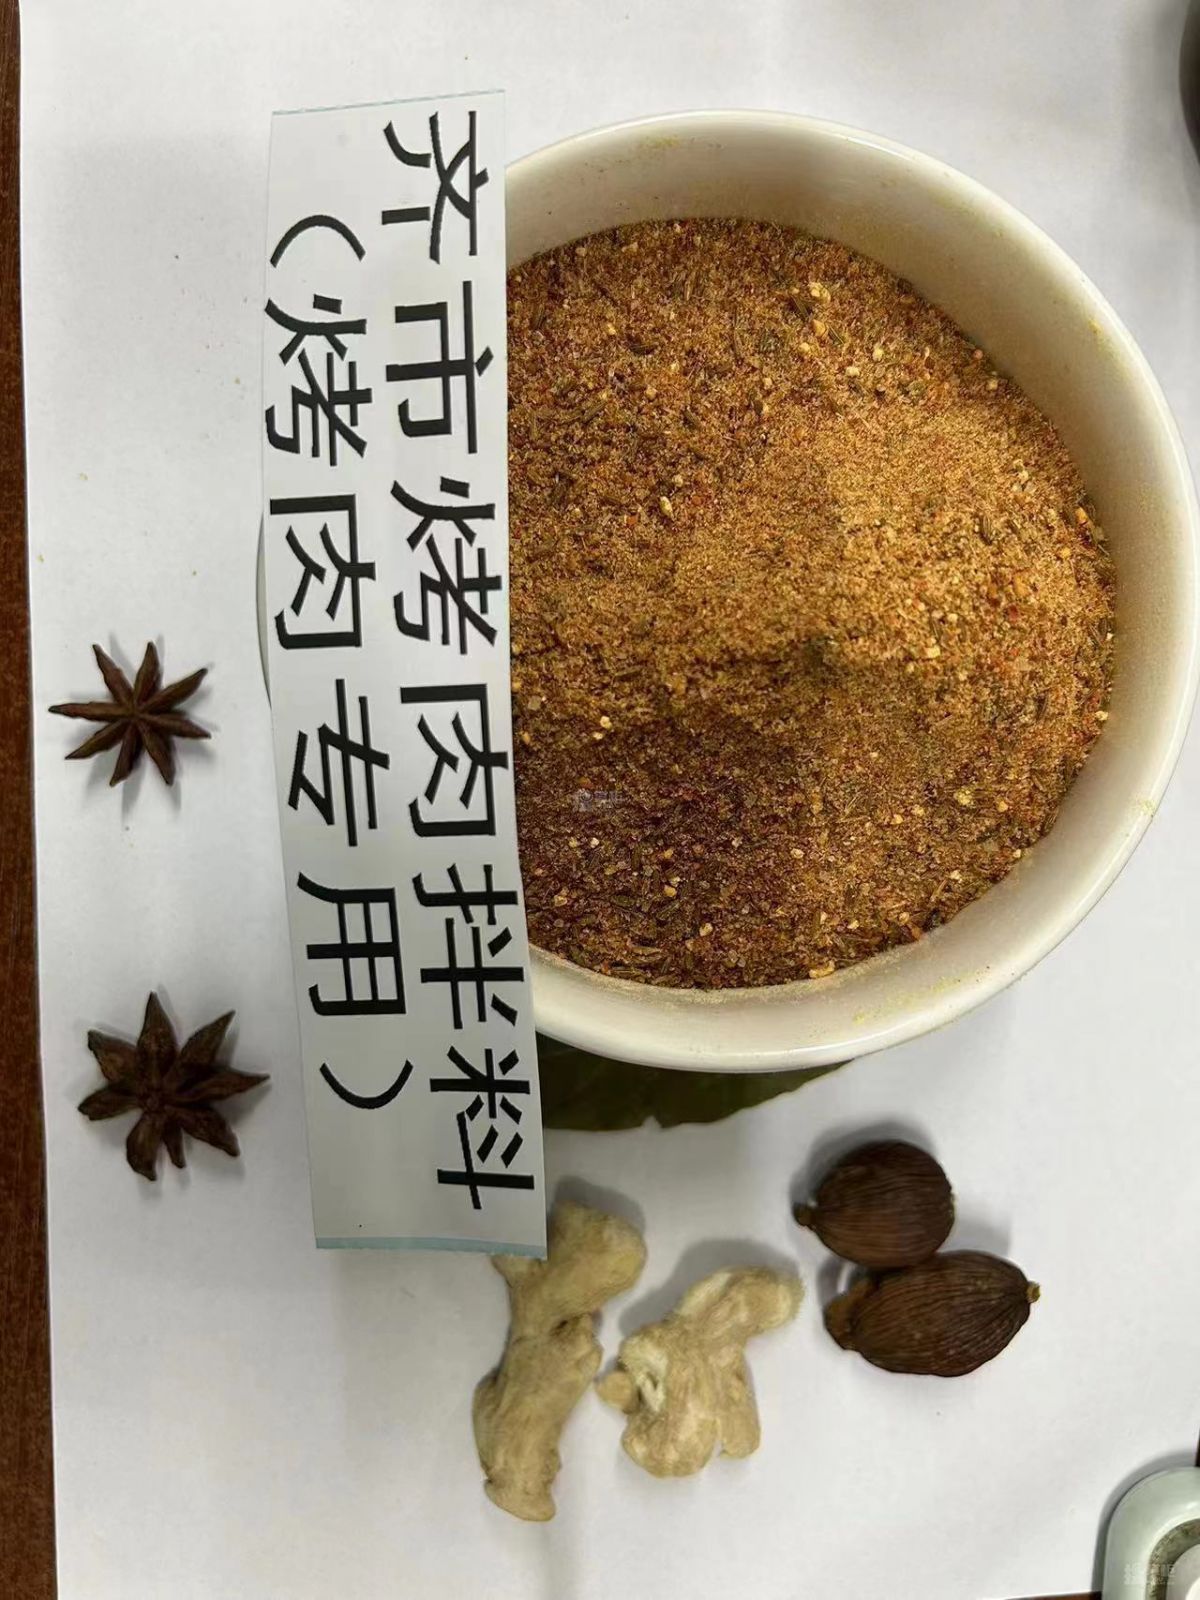 齐市烤肉拌料
（烤肉专用）